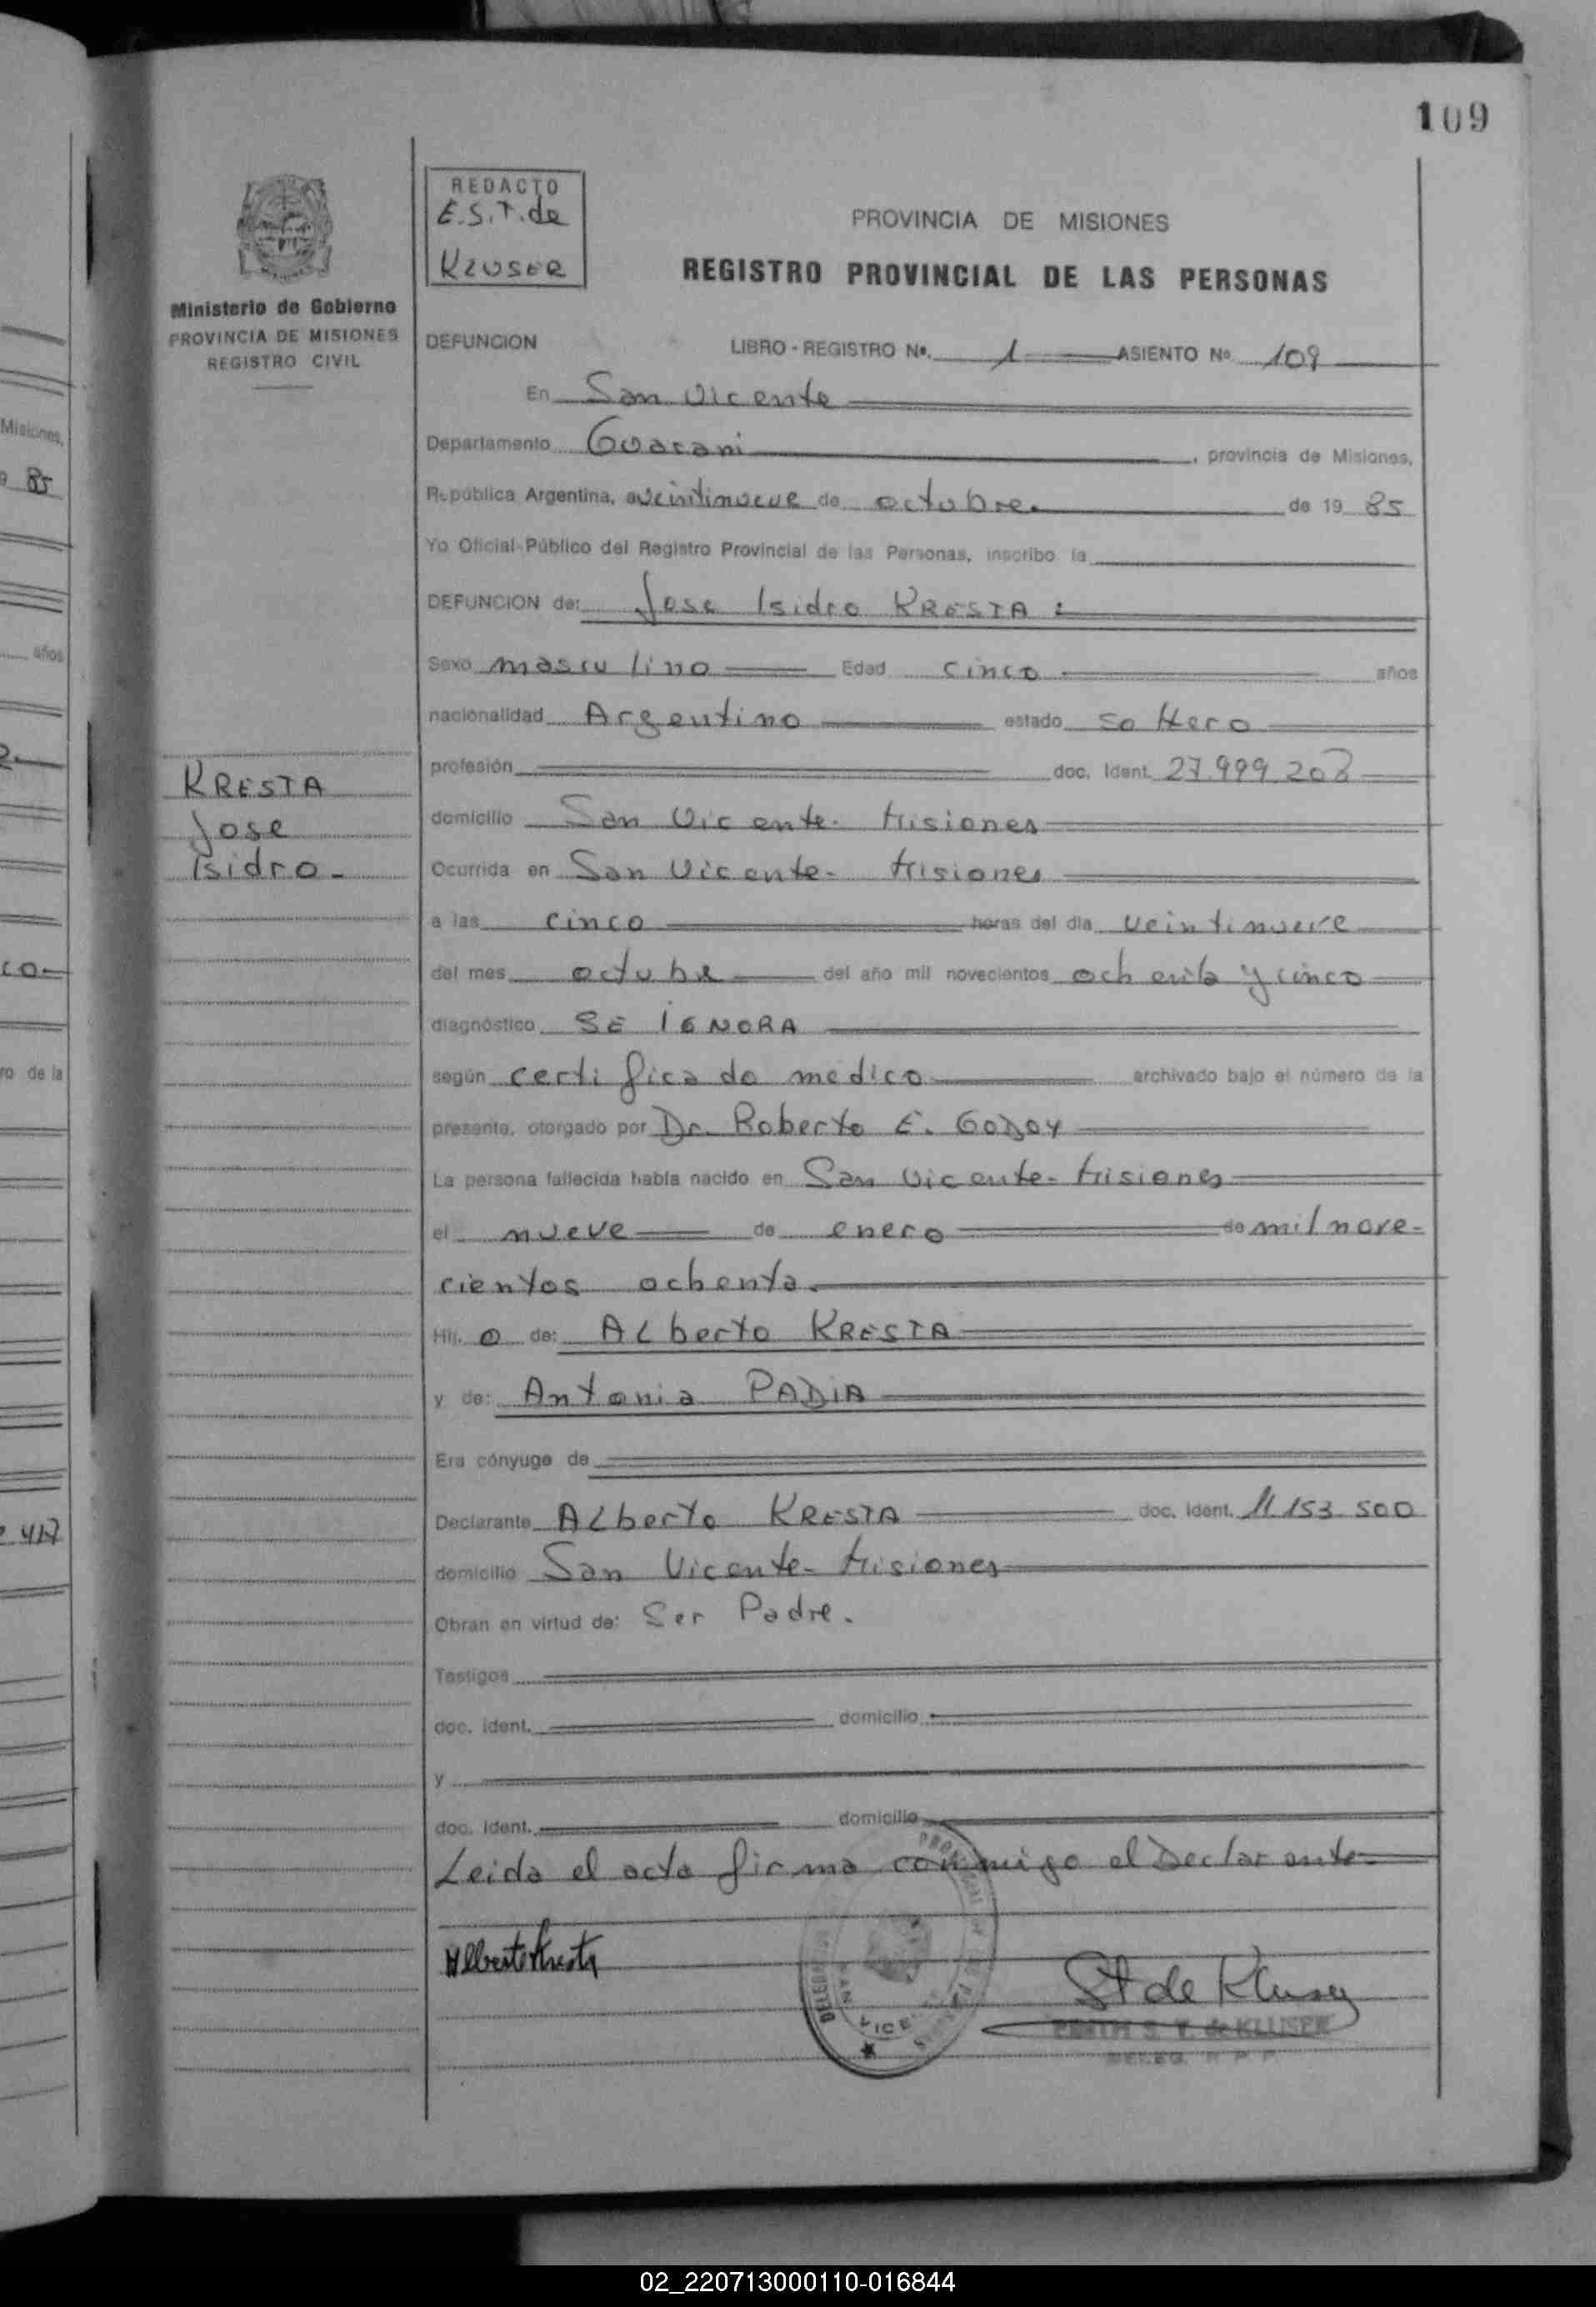 109
REDACTO
E.S.T. de
KLUSER
PROVINCIA DE MISIONES
REGISTRO PROVINCIAL DE LAS PERSONAS
Ministerio de Gobierno
PROVINCIA DE MISIONES
REGISTRO CIVIL
DEFUNCION LIBRO - REGISTRO Nº. 1 ASIENTO Nº 109
En San Vicente
Departamento Guarani, provincia de Misiones,
República Argentina, a veintinueve de octubre. de 19 85
Yo Oficial Público del Registro Provincial de las Personas, inscribo la
DEFUNCION de: Jose Isidro KRESTA:
Sexo masculino Edad cinco años
nacionalidad Argentino estado soltero
profesión doc. Ident. 27.999.208
KRESTA
Jose
Isidro.-
domicilio San Vicente- Misiones
Ocurrida en San Vicente- Misiones
a las cinco horas del día veintinueve
del mes octubre del año mil novecientos ochenta y cinco
diagnóstico SE IGNORA
según certificado medico archivado bajo el número de la
presente, otorgado por Dr. Roberto E. GODOY
La persona fallecida había nacido en San Vicente- Misiones
el nueve de enero de mil nove-
cientos ochenta.
Hij. o de: Alberto KRESTA
y de: Antonia PADIA
Era cónyuge de
Declarante Alberto KRESTA doc. ident. 11.153.500
domicilio San Vicente- Misiones
Obran en virtud de: Ser Padre.
Testigos
doc. ident. domicilio
y
doc. ident. domicilio
Leida el acta firma conmigo el Declarante-
Alberto Kresta
St de Kluser
EDITH S. T. de KLUSER
DELEG. R. P. P.
Misiones,
85
años
ro de la
417
02_220713000110-016844